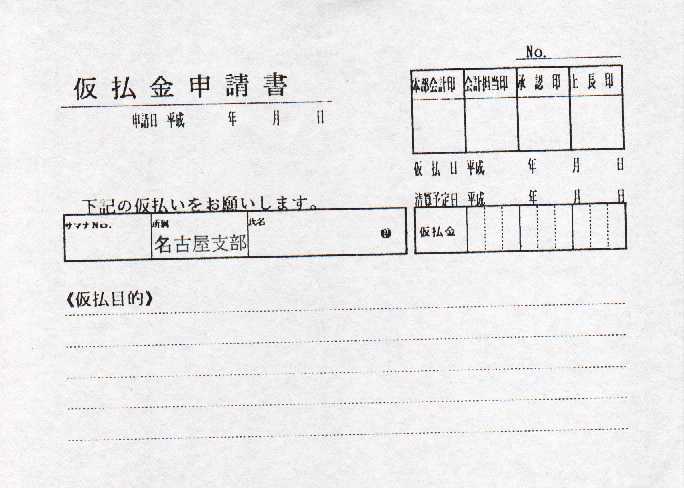 No.
仮払金申請書
本部会計印 会計担当印 承認印 上長印
申請日 平成 年 月 日
仮払日 平成 年 月 日
清算予定日 平成 年 月 日
下記の仮払いをお願いします。
サマナNo. 所属 氏名
名古屋支部 印
仮払金
《仮払目的》